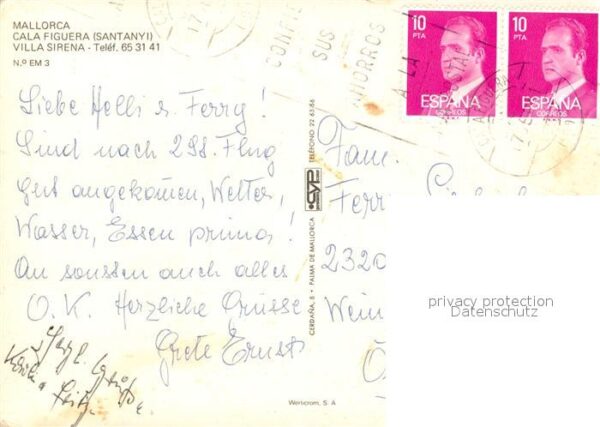 MALLORCA
CALA FIGUERA (SANTANYI)
VILLA SIRENA - Teléf. 65 31 41
N.º EM 3
CONFIE
SUS
AHORROS
A LA
10
PTA
ESPAÑA
CORREOS
10
PTA
ESPAÑA
CORREOS
Liebe Helli u. Ferry!
Sind nach 2 Std. Flug
gut angekommen, Wetter,
Wasser, Essen prima!
An sonsten auch alles
O.K. Herzliche Grüsse
Grete Ernst
Herzl.
CERDAÑA, 8 - PALMA DE MALLORCA
CYP
TELÉFONO 22 63 86
Fam.
Ferr
2320
Wein
Ö
privacy protection
Datenschutz
Werticrom, S. A